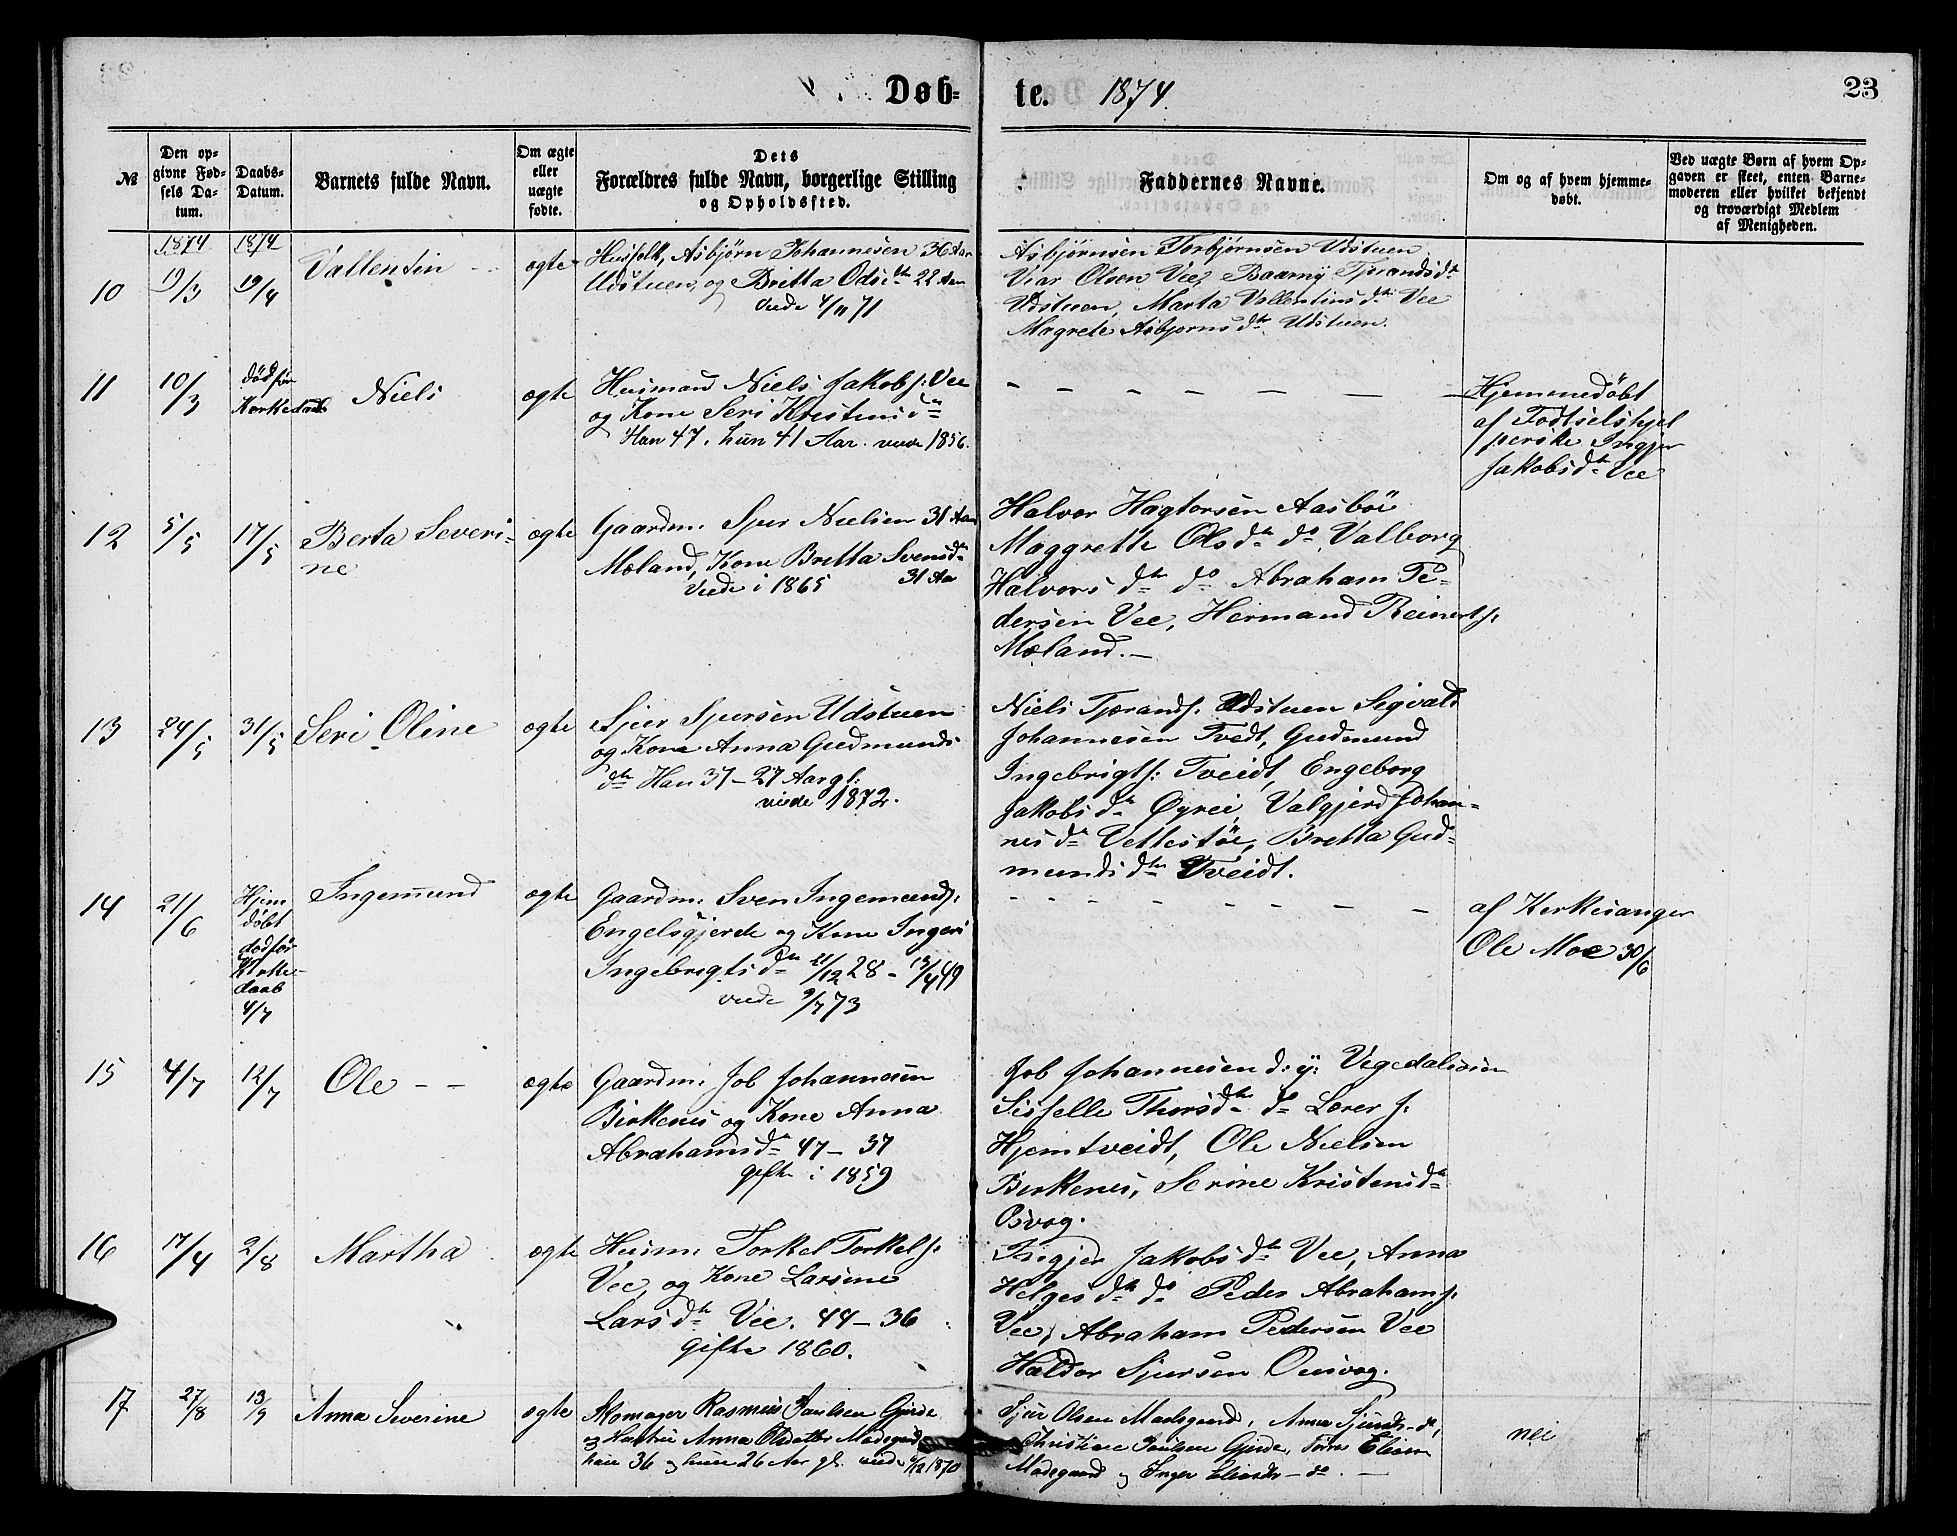 Døb-
te. 1874.
23
№
Den op-
givne Fød-
sels Da-
tum.
Daabs-
Datum.
Barnets fulde Navn.
Om ægte
eller
uægte
fødte.
Dets
Forældres fulde Navn, borgerlige Stilling
og Opholdssted.
Faddernes Navne.
Om og af hvem hjemme-
døbt.
Ved uægte Børn af hvem Op-
gaven er skeet, enten Barne-
moderen eller hvilket bekjendt
og troværdigt Medlem
af Menigheden.
1874 1874
10 19/3 19/4 Vallentin ægte
Husfolk, Asbjørn Johannesen 36 Aar
Udstuen, og Britta Odsdtr 22 Aar
viede 4/11 71
Asbjørnsen Torbjørnsen Udstuen
Viar Olsen Vee,
Udstuen, Marta Vallentinsdtr Vee
Magrete Asbjørnsdtr Udstuen.
11 10/3 død før
Kirkedaab Niels ægte
Husmand Niels Jakobs: Vee
og Kone Seri Kristensdtr
Han 47, hun 41 Aar. viede 1856.
- - - - - - -
Hjemmedøbt
af Fødtselshjel
perske Ingjer
Jakobsdtr Vee
12 5/5 17/5 Berta Severi-
ne ægte
Gaardm: Sjur Nielsen 31 Aar
Mæland, Kone Bretta Svensd-
viede i 1865 31 Aar
Halvor Hagtorsen Aasbøe
Maggrette Olsdtr do Valborg
Halvorsdtr do Abraham Pe-
dersen Vee, Hermand Reinerts.
Mæland.-
13 24/5 31/5 Seri Oline ægte
Sjur Sjursen Udstuen
og Kone Anna Gudmunds
dtr Han 37 - 27 Aar gl:
viede 1872.
Niels Tjerands. Udstuen Sigvald
Johannesen Tvedt, Gudmund
Ingebrigts: Tveidt, Engeborg
Jakobsdtr Øyrei, Valgjerd Johan-
nesdtr Vettestøe, Bretta Gud-
mundsdtr Tveidt.
14 21/6 Hjem
døbt
død før
Kirke-
daab
4/7 Ingemund ægte
Gaardm: Sven Ingemunds:
Engelsgjerde og Kone Ingeri
Ingebrigtsdtr 21/12 28 - 13/4 49
viede 9/7 73
- - - - - - - -
af Kerkesanger
Ole Moe 30/6
15 4/7 12/7 Ole - - ægte
Gaardm: Job Johannesen
Birkenes og Kone Anna
Abrahamsdtr 47 - 37
gifte i 1859
Job Johannesen d: y: Vegedalsoien
Sisselle Thorsdtr do
Hjemtveidt, Ole Nielsen
Berkenes, Serine Kristensdtr
16 17/4 2/8 Martha ægte
Husm: Torkel Torkels.
Vee, og Kone Larsine
Larsdtr Vee. 44 - 36
gifte 1860.
Ingjer Jakobsdtr Vee, Anna
Helgesdtr do Peder Abrahams.
Vee, Abraham Pedersen Vee
Haldor Sjursen Ousvog.
17 27/8 13/9 Anna Severine ægte
Skomager Rasmus Paulsen Gjerde
og Hustru Anna Olsdatter Madsgaard
han 36 og hun 26 Aar gl. viede 1870
Sjur Olsen Madsgaard, Anna do,
Christiane Paulsen Gjerde,
Madsgaard og Inger do. -
nei